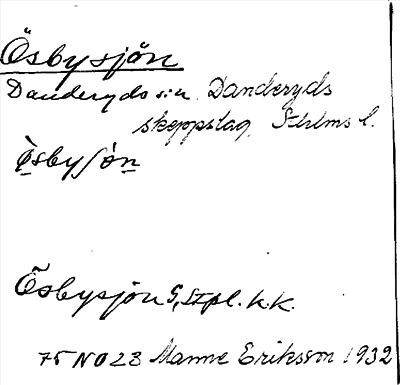 Ösbysjön
Danderyds sn. Danderyds
skeppslag, Sthlms l.
Ösbysjön
Ösbysjön G, stpl. k.k.
75 NO 23 Manne Eriksson 1932